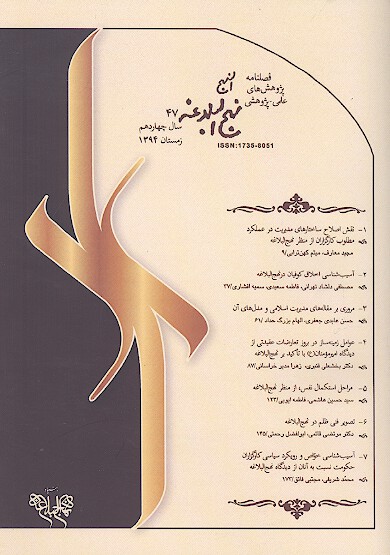 فصلنامه
پژوهش‌های
علمی-پژوهشی
النهج
نهج البلاغه
۴۷
سال چهاردهم
زمستان ۱۳۹۴
ISSN:1735-8051
۱- نقش اصلاح ساختارهای مدیریت در عملکرد
مطلوب کارگزاران از منظر نهج‌البلاغه
مجید معارف، میثم کهن‌ترابی/۹
۲- آسیب‌شناسی اخلاق کوفیان در نهج‌البلاغه
مصطفی دلشاد تهرانی، فاطمه سعیدی، سمیه افشاری/۲۷
۳- مروری بر مقاله‌های مدیریت اسلامی و مدل‌های آن
حسن عابدی جعفری، الهام بزرگ حداد/۶۱
۴- عوامل زمینه‌ساز در بروز تعارضات عقیدتی از
دیدگاه امیرمؤمنان(ع) با تأکید بر نهج‌البلاغه
دکتر بخشعلی قنبری، زهرا مدبر خراسانی/۸۷
۵- مراحل استکمال نفس، از منظر نهج‌البلاغه
سید حسین هاشمی، فاطمه ایوبی/۱۲۳
۶- تصویر فنی ظلم در نهج‌البلاغه
دکتر مرتضی قائمی، ابوالفضل رحمتی/۱۴۵
۷- آسیب‌شناسی خواص و رویکرد سیاسی کارگزاران
حکومت نسبت به آنان از دیدگاه نهج‌البلاغه
محمد شریفی، مجتبی فائق/۱۷۳